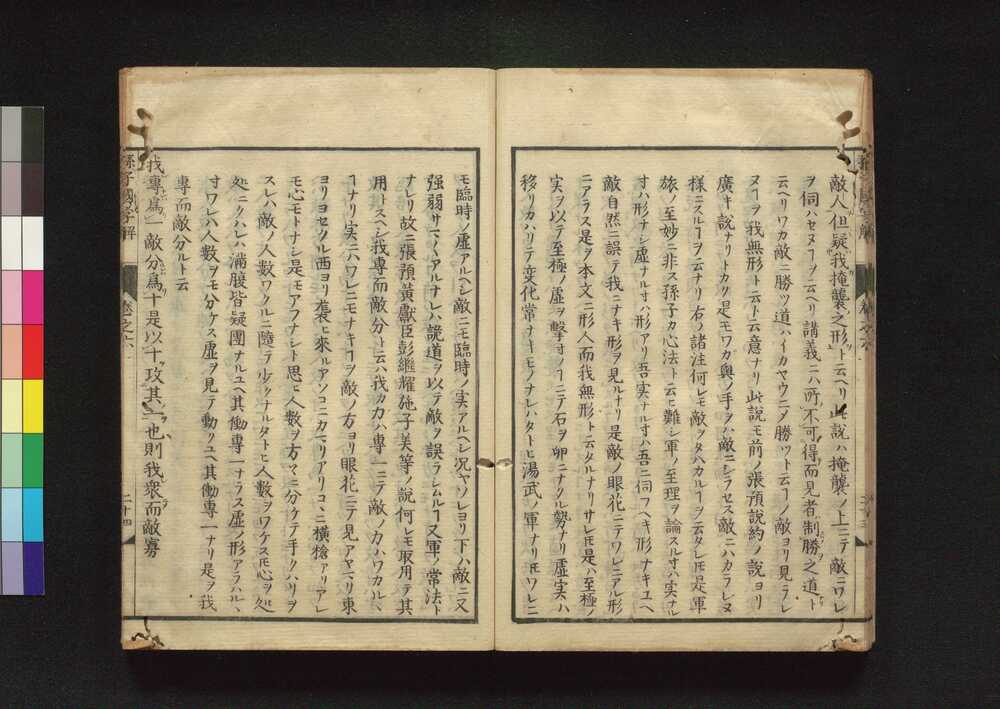 敵人但疑我掩襲之形ト云ヘリ此説ハ掩襲ノ上ニテ敵ニワレ
ヲ伺ハセヌヿヲ云ヘリ講義ニハ所不可得而見者制勝之道ト
云ヘリワカ敵ニ勝ツ道ハイカヤウニノ勝ツト云ヿノ敵ヨリ見ラレ
ヌヿヲ我無形ト云ト云意ナリ此説モ前ノ張預説約ノ説ヨリ
廣キ説ナリトカク是モワカ奥ノ手ヲハ敵ニシラセス敵ニハカラレヌ
様ニスルヿヲ云ナリ右ノ諸注何レモ敵ヲタハカルヿヲ云タレ𪜈是軍
旅ノ至妙ニ非ス孫子カ心法ト云ヒ難シ軍ノ至理ヲ論スル寸ハ実ナル
寸ハ形ナシ虚ナル寸ハ形アリ吾実ナル寸ハ吾ニ伺フヘキ形ナキユヘ
敵自然ニ誤テ我ニナキ形ヲ見ルナリ是敵ノ眼花ニテワレニアル形
ニアラス是ヲ本文ニ形人而我無形ト云タルナリサレ𪜈是ハ至極ノ
実ヲ以テ至極ノ虚ヲ撃寸ノヿニテ石ヲ卵ニナクル勢ナリ虚実ハ
移リカハリテ変化常ナキモノナレハタトヒ湯武ノ軍ナリ𪜈ワレニ
モ臨時ノ虚アルヘシ敵ニモ臨時ノ実アルヘシ况ヤソレヨリ下ハ敵ニ又
強弱サマ〱アルナレハ詭道ヲ以テ敵ヲ誤ラシムルヿ又軍ノ常法ト
ナレリ故ニ張預黄獻臣彭繼耀施子美等ノ説何レモ取用テ其
用トスヘシ我専而敵分ト云ハ我カ力ハ専一ニテ敵ノ力ハワカル丶
ヿナリ実ニハワレニモナキヿヲ敵ノ方ヨリ眼花ニテ見アヤマリ東
ヨリヨセクル西ヨリ襲ヒ來ルアソコニカマリアリコ丶ニ横槍アリアレ
モ心モトナシ是モアフナシト思ヒ人数ヲ方々ニ分ケテ手クハリヲ
スレハ敵ノ人数ワクルニ隨テ少クナルタトヒ人数ヲワケス𪜈心ヲ処
処ニクハレハ満腹皆疑團ナルユヘ其働専一ナラス虚ノ形アラハル丶
寸ワレハ人数ヲモ分ケス虚ヲ見テ動クユヘ其働専一ナリ是ヲ我
専而敵分ルト云
我專爲一敵分爲十是以十攻其一也則我衆而敵寡
孫子國字解
卷之六
二十四